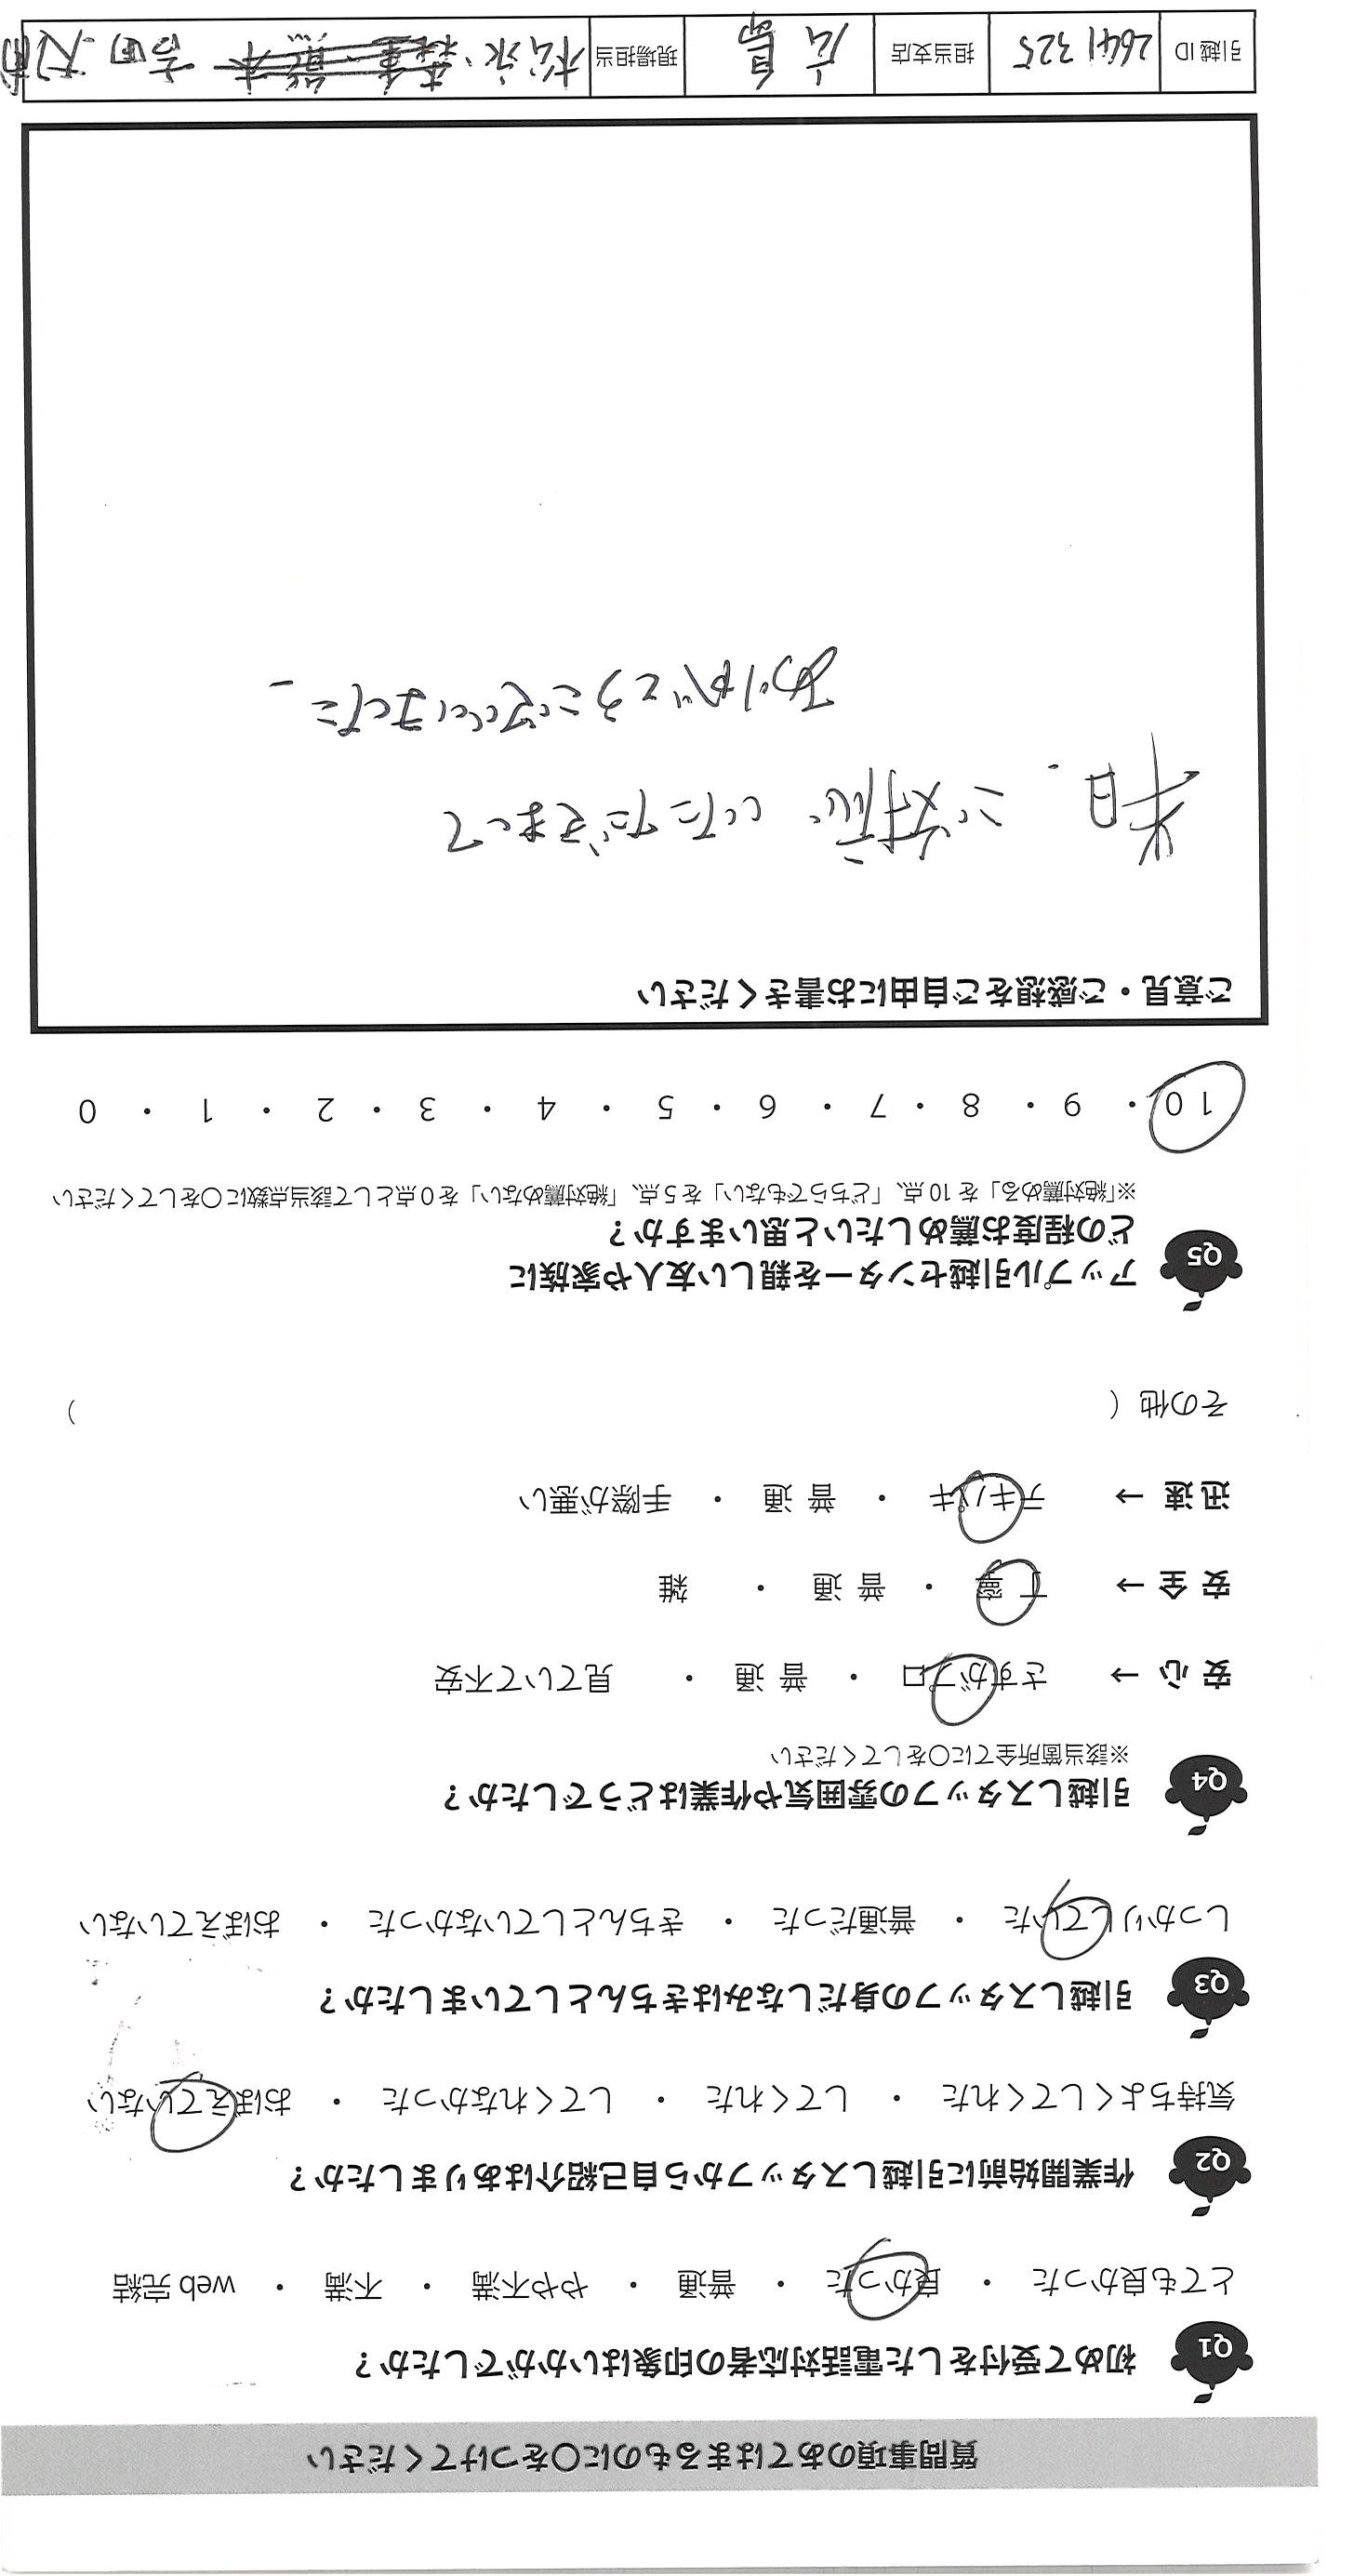 質問事項のあてはまるものに○をつけてください
Q1 初めて受付をした電話対応者の印象はいかがでしたか？
とても良かった ・ 良かった ・ 普通 ・ やや不満 ・ 不満 ・ web 完結
Q2 作業開始前に引越しスタッフから自己紹介はありましたか？
気持ちよくしてくれた ・ してくれた ・ してくれなかった ・ おぼえていない
Q3 引越しスタッフの身だしなみはきちんとしていましたか？
しっかりしていた ・ 普通だった ・ きちんとしていなかった ・ おぼえていない
Q4 引越しスタッフの雰囲気や作業はどうでしたか？
※該当箇所全てに○をしてください
安 心 → さすがプロ ・ 普 通 ・ 見ていて不安
安 全 → 丁 寧 ・ 普 通 ・ 雑
迅 速 → テキパキ ・ 普 通 ・ 手際が悪い
その他（ ）
Q5 アップル引越センターを親しい友人や家族に
どの程度お薦めしたいと思いますか？
※「絶対薦める」を 10 点、「どちらでもない」を 5 点、「絶対薦めない」を 0 点として該当点数に○をしてください
10 ・ 9 ・ 8 ・ 7 ・ 6 ・ 5 ・ 4 ・ 3 ・ 2 ・ 1 ・ 0
ご意見・ご感想をご自由にお書きください
ご対応 いただきまして
ありがとうございました
引越 ID 2641325 担当支店 広島 現場担当 松永 吉田